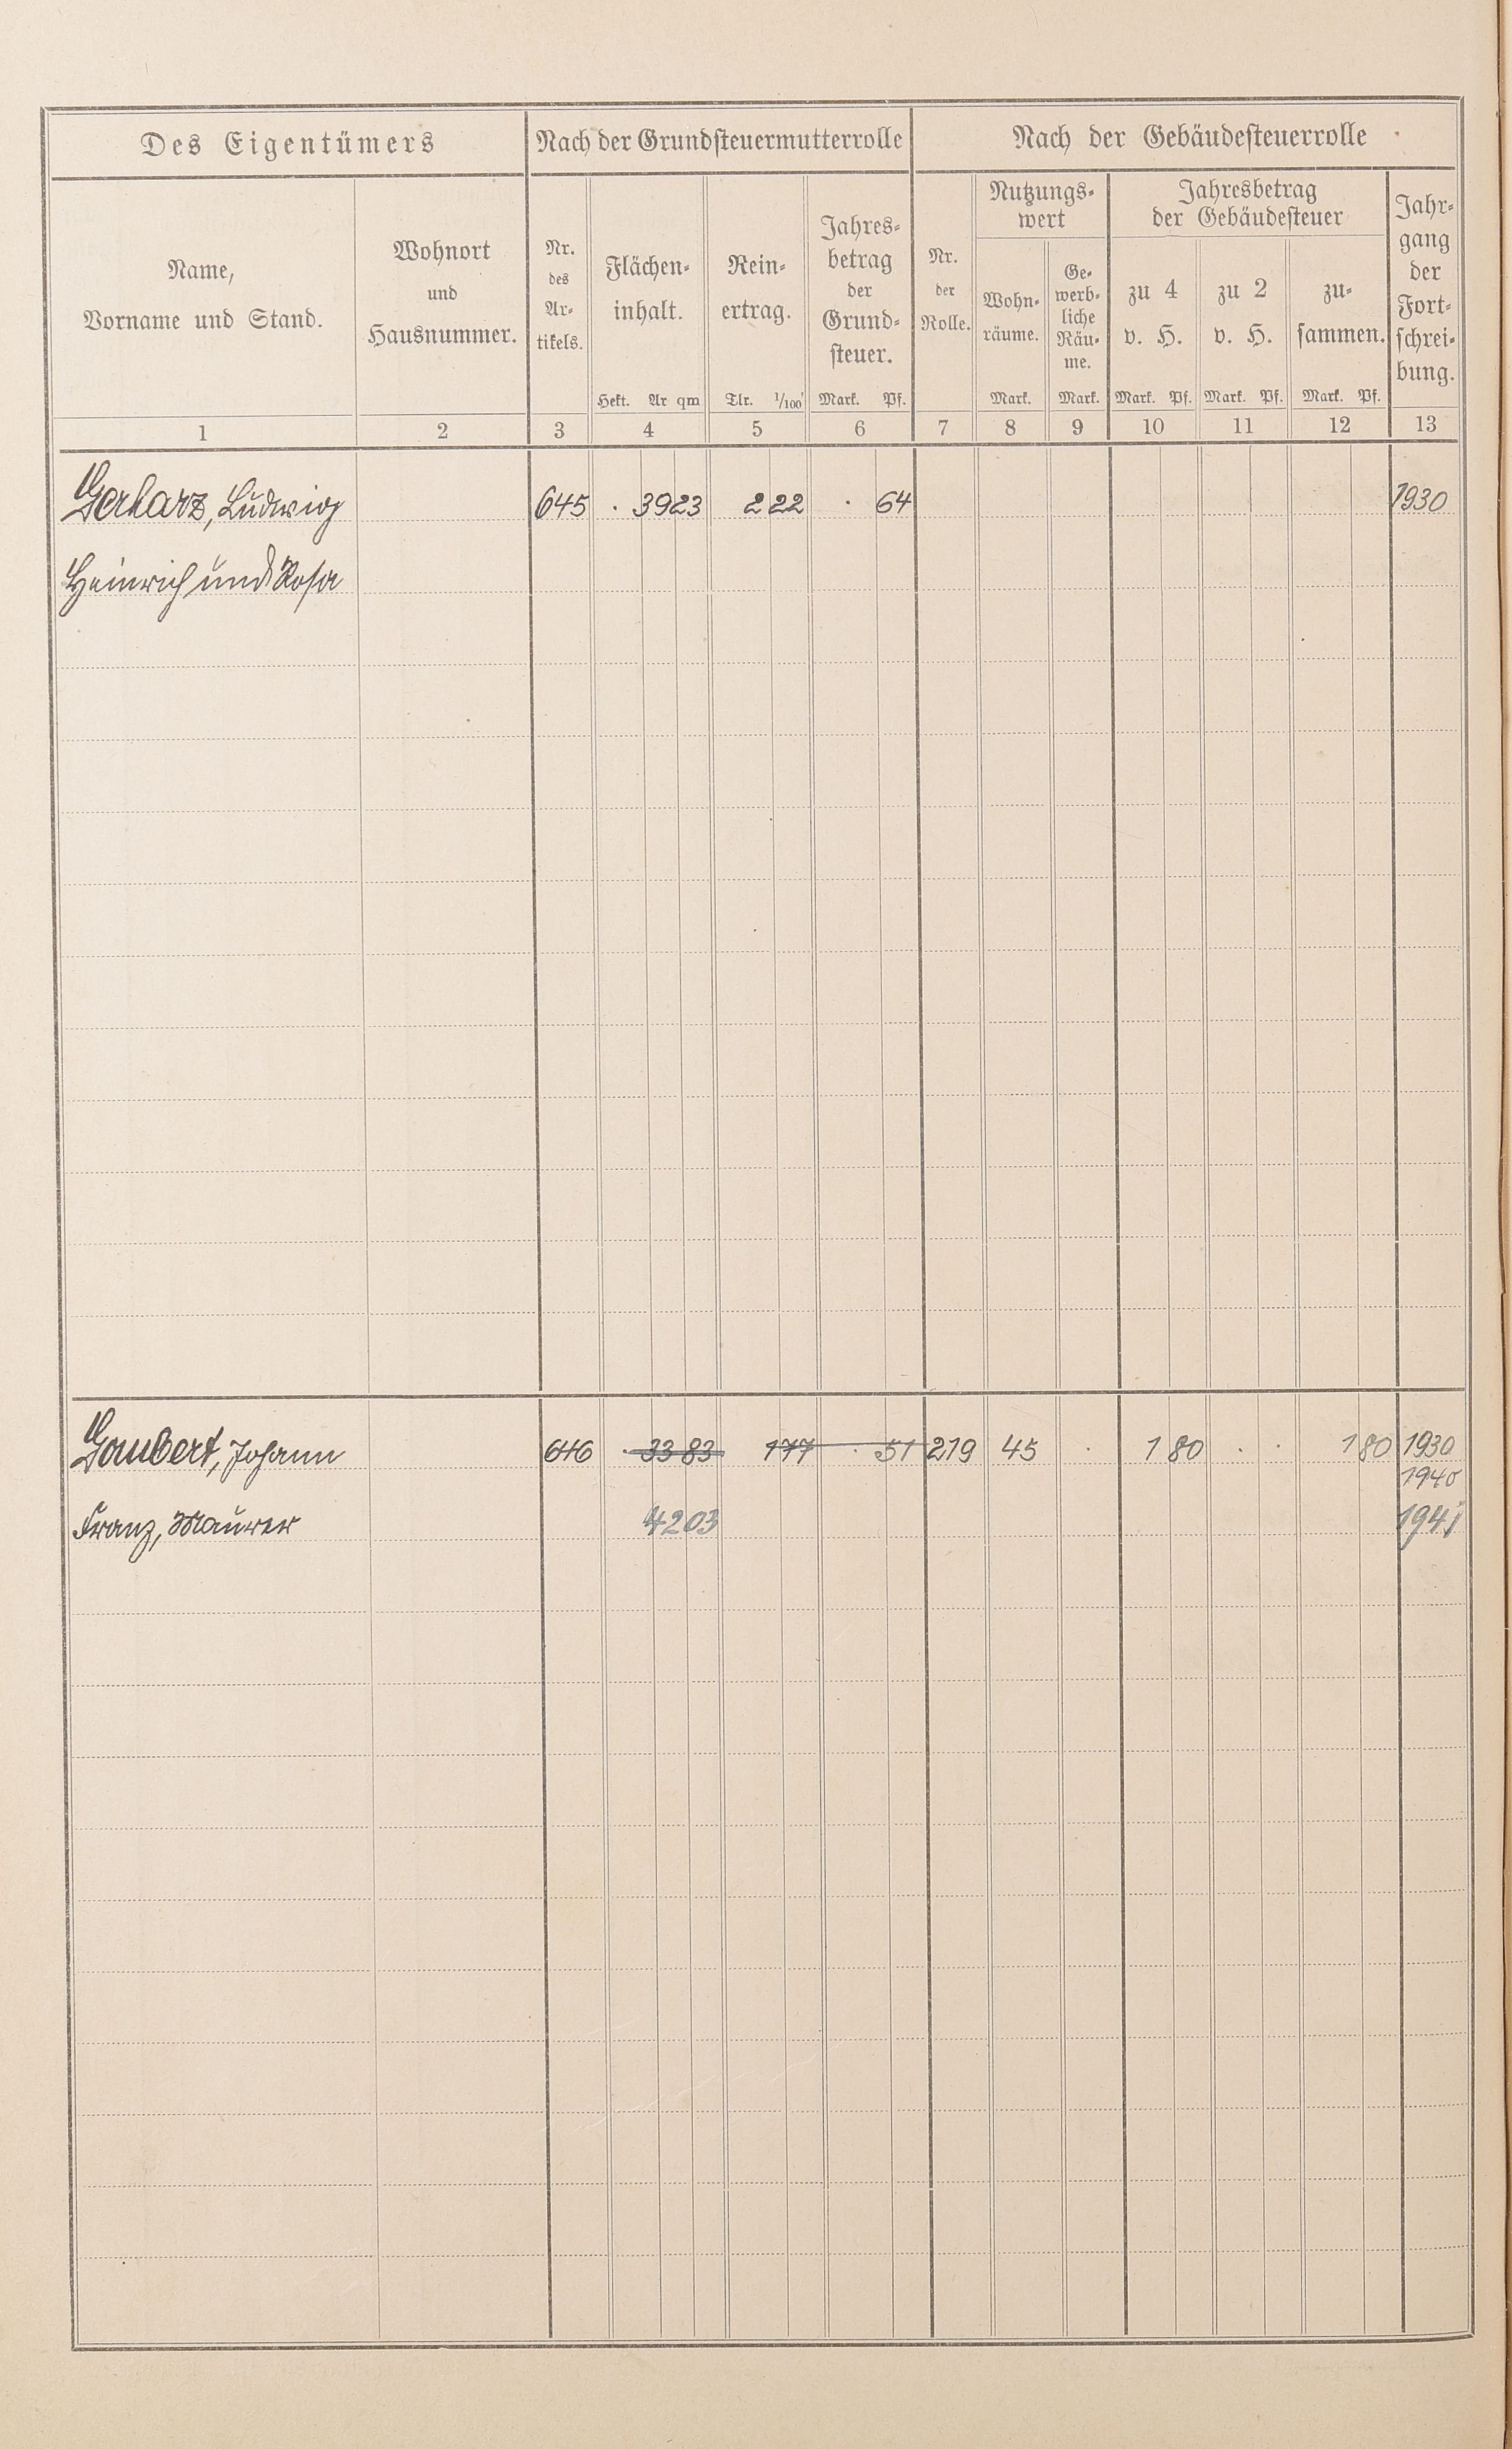 Des Eigentümers Nach der Grundsteuermutterrolle Nach der Gebäudesteuerrolle
Name,
Vorname und Stand.
Wohnort
und
Hausnummer.
Nr.
des
Ar-
tikels.
Flächen-
inhalt.
Hekt. Ar qm
Rein-
ertrag.
Tlr. 1/100
Jahres-
betrag
der
Grund-
steuer.
Mark. Pf.
Nr.
der
Rolle.
Nutzungs-
wert
Wohn-
räume.
Mark.
Ge-
werb-
liche
Räu-
me.
Mark.
Jahresbetrag
der Gebäudesteuer
zu 4
v. H.
Mark. Pf.
zu 2
v. H.
Mark. Pf.
zu-
sammen.
Mark. Pf.
Jahr-
gang
der
Fort-
schrei-
bung.
1 2 3 4 5 6 7 8 9 10 11 12 13
Gerharz, Ludwig 645 . 39 23 2 22 . 64 1930
Heinrich und Rosa
Gombert, Johann 646 . 33 83 1 77 . 51 219 45 . 1 80 . . 1 80 1930
1940
Franz, Maurer 42 03 1941